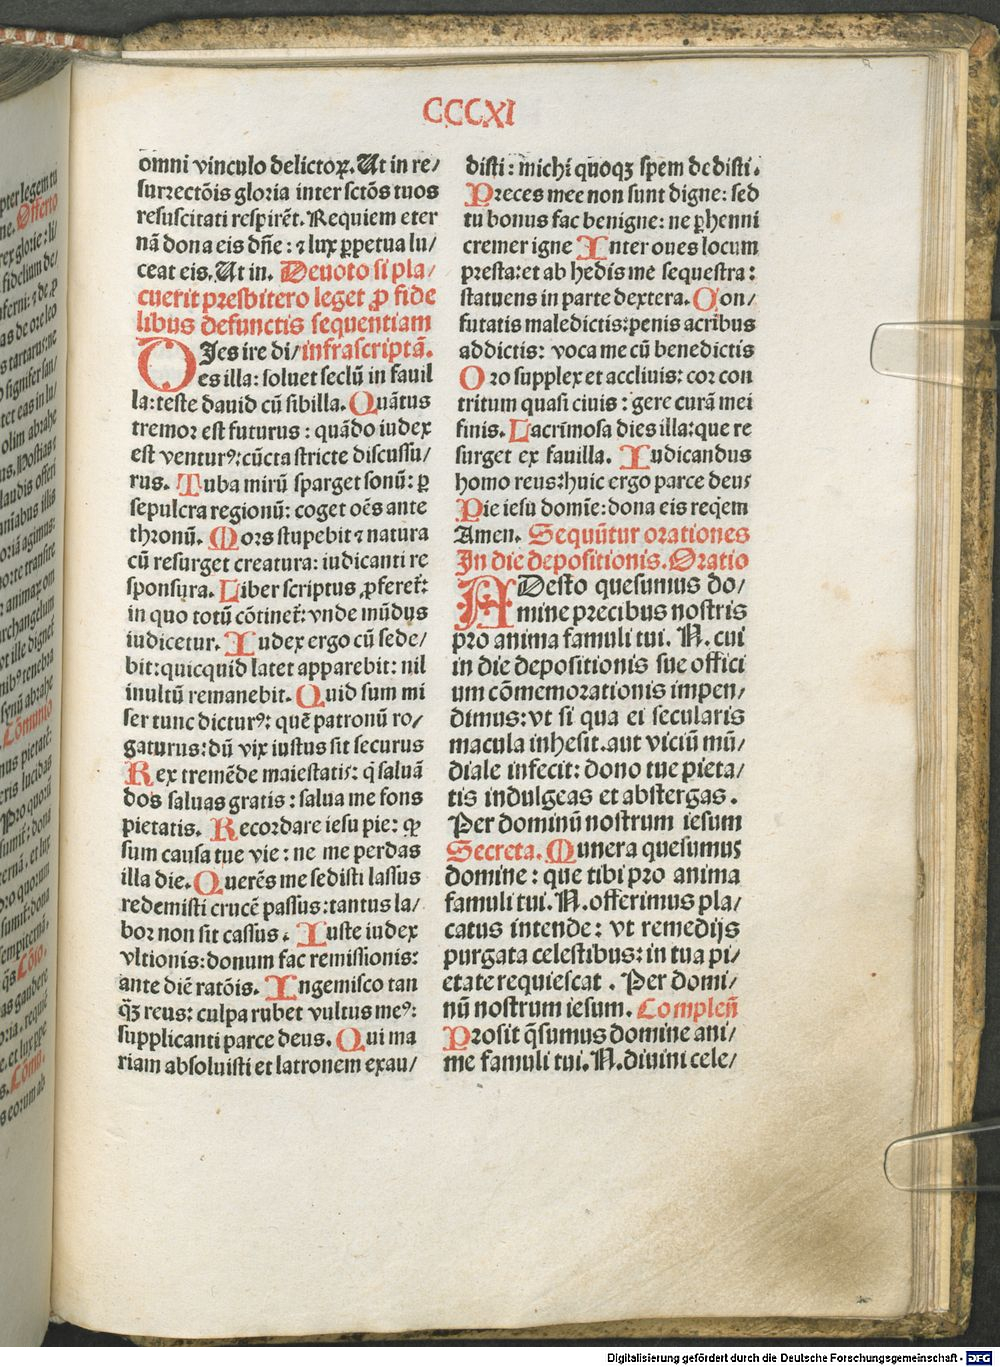 CCCXI
omni vinculo delictoꝝ. Ut in re/
surrectōis gloria inter sctōs tuos
resuscitati respirēt. Requiem eter
nā dona eis dn̄e: ⁊ lux ꝑpetua lu/
ceat eis. Ut in. Deuoto si pla/
cuerit presbitero leget ꝓ fide
libus defunctis sequentiam
DIes ire di/ infrascriptā.
es illa: soluet seclū in fauil
la: teste dauid cū sibilla. Quātus
tremor est futurus: quādo iudex
est venturꝰ: cūcta stricte discussu/
rus. Tuba mirū sparget sonū: ꝑ
sepulcra regionū: coget oēs ante
thronū. Mors stupebit ⁊ natura
cū resurget creatura: iudicanti re
sponsura. Liber scriptus ꝓferet̄:
in quo totū cōtinet̄: vnde mūdus
iudicetur. Iudex ergo cū sede/
bit: quicquid latet apparebit: nil
inultū remanebit. Quid sum mi
ser tunc dicturꝰ: quē patronū ro/
gaturus: dū vix iustus sit securus
Rex tremēde maiestatis: q̄ saluā
dos saluas gratis: salua me fons
pietatis. Recordare iesu pie: ꝙ
sum causa tue vie: ne me perdas
illa die. Querēs me sedisti lassus
redemisti crucē passus: tantus la/
bor non sit cassus. Iuste iudex
vltionis: donum fac remissionis:
ante diē ratōis. Ingemisco tan
qꝫ̄ reus: culpa rubet vultus meꝰ:
supplicanti parce deus. Qui ma
riam absoluisti et latronem exau/
disti: michi quoqꝫ spem dedisti.
Preces mee non sunt digne: sed
tu bonus fac benigne: ne ꝑhenni
cremer igne Inter oues locum
presta: et ab hedis me sequestra:
statuens in parte dextera. Con/
futatis maledictis: penis acribus
addictis: voca me cū benedictis
Oro supplex et accliuis: cor con
tritum quasi ciuis: gere curā mei
finis. Lacrīmosa dies illa: que re
surget ex fauilla. Iudicandus
homo reus: huic ergo parce deus
Pie iesu domīe: dona eis reqēm
Amen. Sequūtur orationes
In die depositionis. Oratio
ADesto quesumus do/
mine precibus nostris
pro anima famuli tui. N. cui
in die depositionis sue offici
um cōmemorationis impen/
dimus: vt si qua ei secularis
macula inhesit. aut viciū mū/
diale infecit: dono tue pieta/
tis indulgeas et abstergas.
Per dominū nostrum iesum
Secreta. Munera quesumus
domine: que tibi pro anima
famuli tui. N. offerimus pla/
catus intende: vt remedijs
purgata celestibus: in tua pi/
etate requiescat. Per domi/
nū nostrum iesum. Compleñ
Prosit q̄sumus domine ani/
me famuli tui. N. diuini cele/
Digitalisierung gefördert durch die Deutsche Forschungsgemeinschaft - DFG